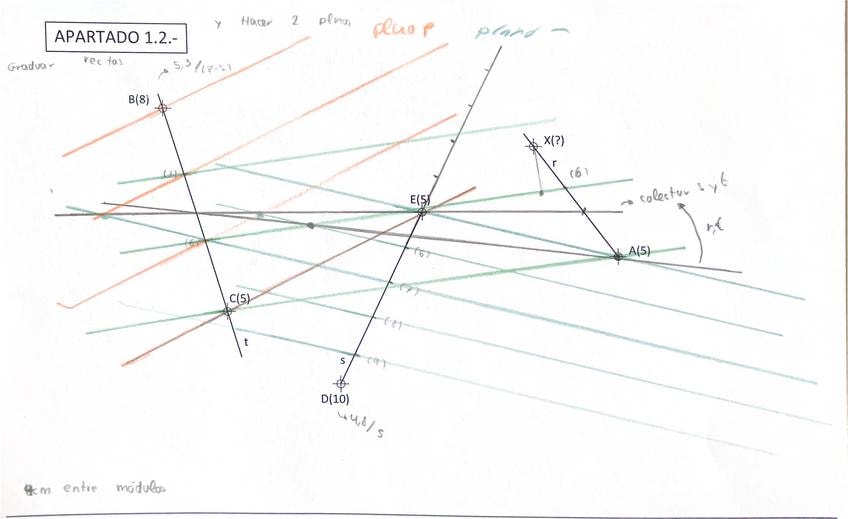 y Hacer 2 planos
plano p
plano
APARTADO 1.2.-
Graduar rectas
5,3/(8-5)
B(8)
X(?)
r
(7)
(6)
colectur s y t
E(5)
r,t
(6)
A(5)
(6)
(7)
C(5)
(8)
t
s
(9)
D(10)
4,8/5
4cm entre módulos